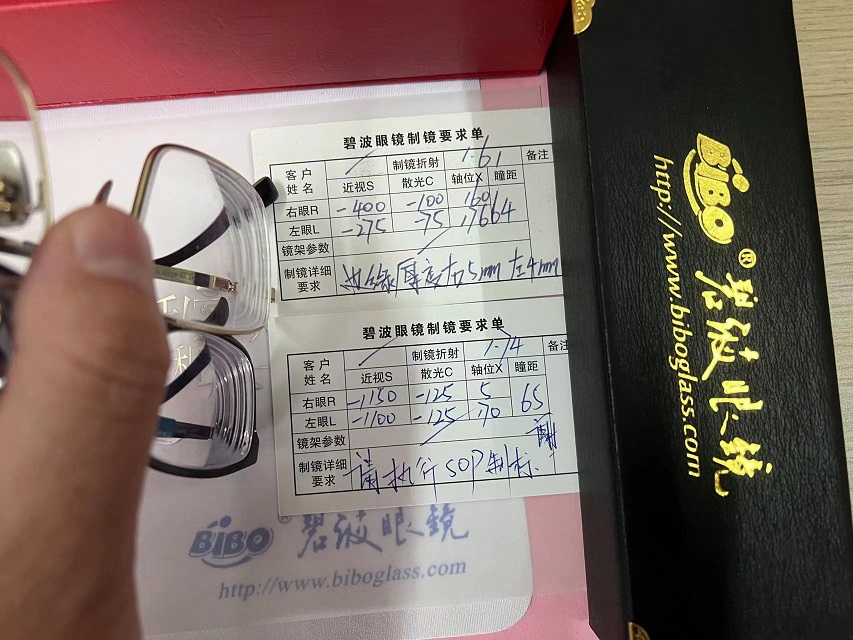 碧波眼镜制镜要求单
客户姓名 制镜折射 1.61 备注
近视S 散光C 轴位X 瞳距
右眼R -400 -100 160
左眼L -275 -75 176 64
镜架参数
制镜详细要求 边缘厚度右5mm 左4mm
碧波眼镜制镜要求单
客户姓名 制镜折射 1.74 备注
近视S 散光C 轴位X 瞳距
右眼R -1150 -125 5 65
左眼L -1100 -125 170
镜架参数
制镜详细要求 请执行SOP制标
谢
BiBO® 碧波眼镜
http://www.biboglass.com
BiBO® 碧波眼镜
http://www.biboglass.com